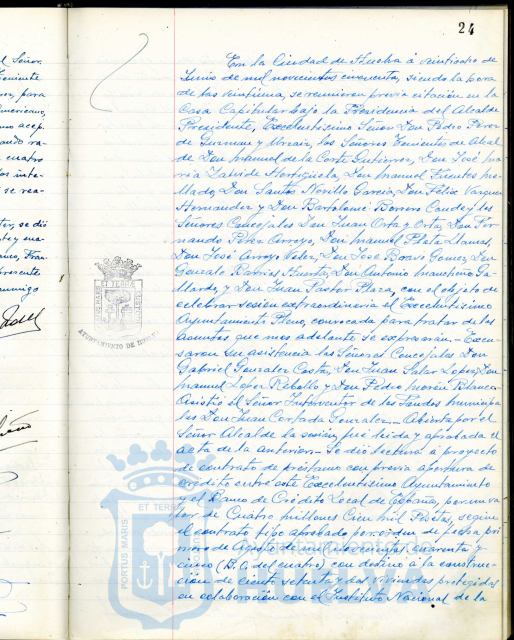 24
En la Ciudad de Huelva á veinticuatro de
Junio de mil novecientos cincuenta, siendo la hora
de las veintiuna, se reunieron previa citación en la
Casa Capitular bajo la Presidencia del Alcalde
Presidente, Excelentísimo Señor Don Pedro Pérez
de Guzmán y Urzáiz, los Señores Tenientes de Alcal
de Don Manuel de la Corte Gutierrez, Don José Ma
ría Hortigüela, Don Manuel Fuentes Ma
llado, Don Santos Novillo García, Don Félix Vazquez
Hernandez y Don Bartolomé Borrero Candey los
Señores Concejales Don Juan Orta y Orta, Don Fer
nando Pérez Arroyo, Don Manuel Plata Llamas,
Don José Arroyo Velez, Don José Bravo Gomez, Don
Gonzalo Barrios Huerta, Don Antonio Mancheño Ga
llardo, y Don Juan Pastor Plaza, con el objeto de
celebrar sesión extraordinaria el Excelentísimo
Ayuntamiento Pleno, convocada para tratar de los
asuntos que mas adelante se expresarán.- Excu-
saron su asistencia los Señores Concejales Don
Gabriel Gonzalez Costas, Don Juan Salas Lopez, Don
Manuel Lopez Rebollo y Don Pedro Morón Blanco.-
Asistió el Señor Interventor de los Fondos municipa
les Don Juan Cortada Gonzalez.- Abierta por el
Señor Alcalde la sesión, fué leida y aprobada el
acta de la anterior.- Se dió lectura á proyecto
de contrato de préstamo con previa apertura de
crédito entre este Excelentísimo Ayuntamiento
y el Banco de Crédito Local de España, por un va
lor de Cuatro millones Cien mil Pesetas, según
el contrato tipo aprobado por orden de fecha pri
mero de Agosto de mil novecientos cuarenta y
cinco (B.O. del cuatro) con destino á la construc-
cion de ciento setenta y dos viviendas protegidas
en colaboración con el Instituto Nacional de la
ET TERRE
AYUNTAMIENTO DE HUELVA
ET TERRE
PORTUS MARIS